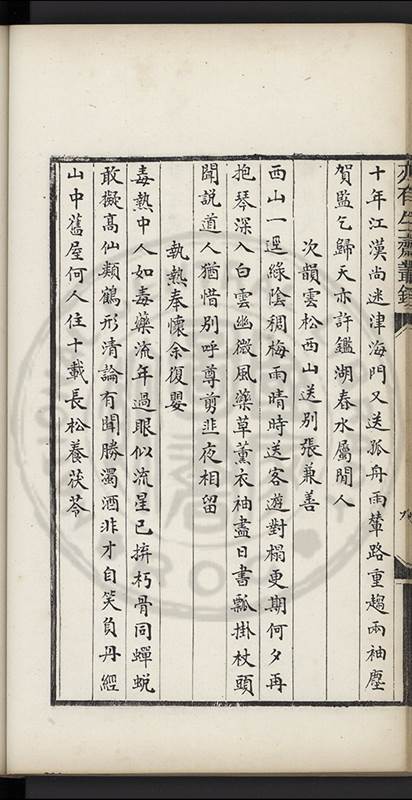 十年江漢尚迷津海門又送孤舟雨輦路重趨兩袖塵
賀監乞歸天亦許鑑湖春水屬閒人
次韻雲松西山送別張兼善
西山一逕綠陰稠梅雨晴時送客遊對榻更期何夕再
抱琴深入白雲幽微風藥草薰衣袖盡日書瓢掛杖頭
聞說道人猶惜別呼尊剪韭夜相留
執熱奉懷余復嬰
毒熱中人如毒藥流年過眼似流星已拚朽骨同蟬蛻
敢擬高仙類鶴形清論有聞勝濁酒非才自笑負丹經
山中舊屋何人住十載長松養茯苓